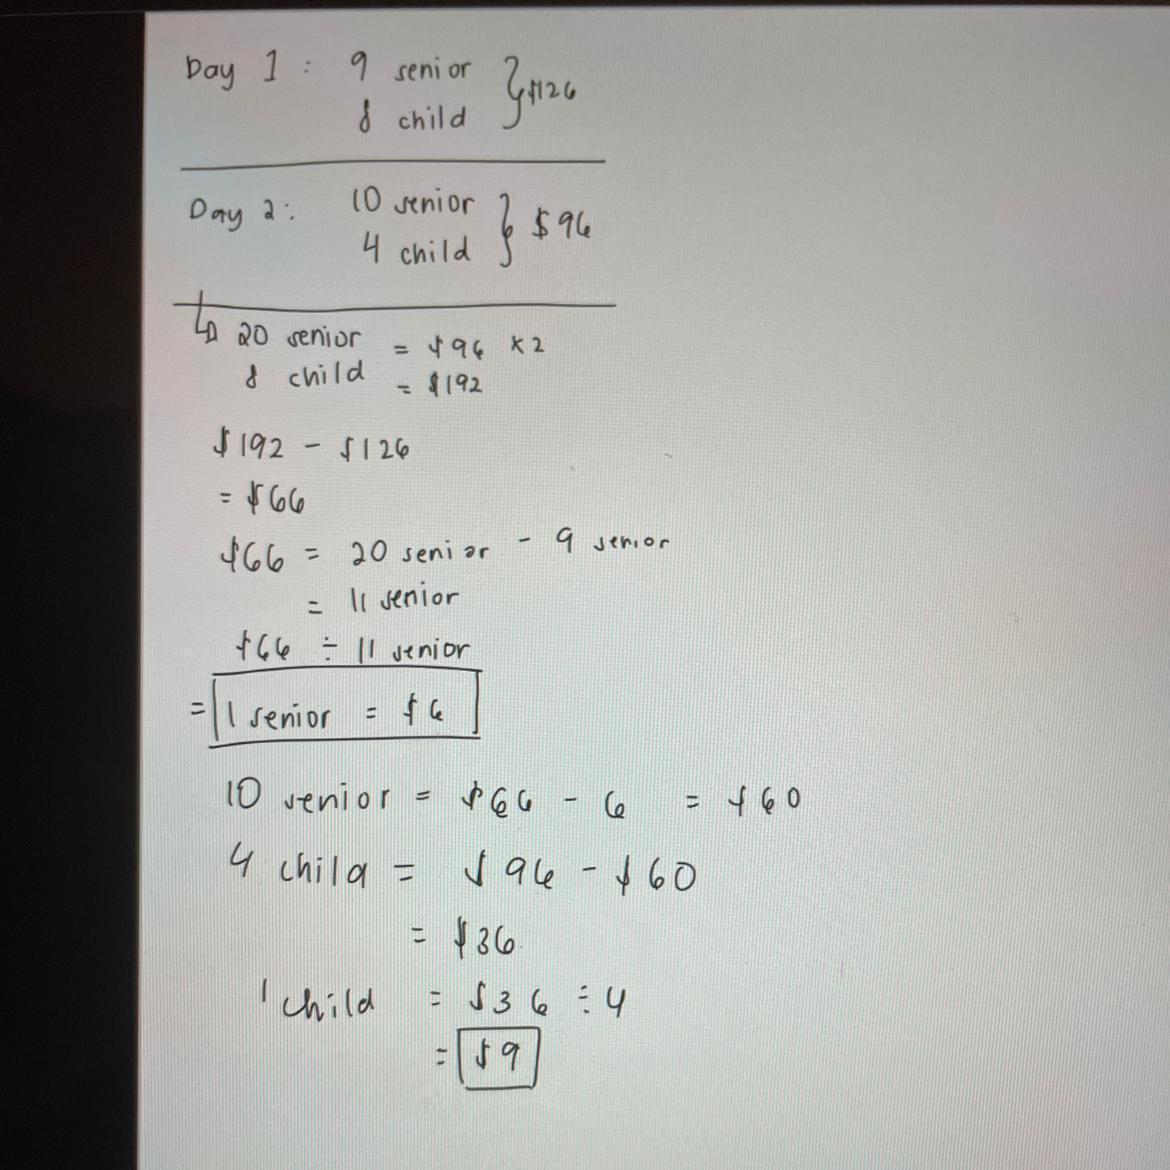 Day 1 : 9 senior } $126
8 child
Day 2: 10 senior } $96
4 child
↳ 20 senior = $96 × 2
8 child = $192
$192 - $126
= $66
$66 = 20 senior - 9 senior
= 11 senior
$66 ÷ 11 senior
= 1 senior = $6
10 senior = $66 - 6 = $60
4 child = $96 - $60
= $36
1 child = $36 ÷ 4
= $9